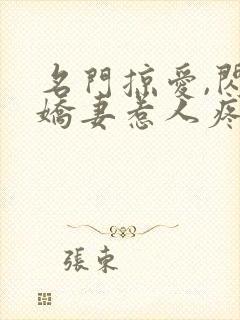 名門掠愛,閃
嬌妻惹人疼
張束